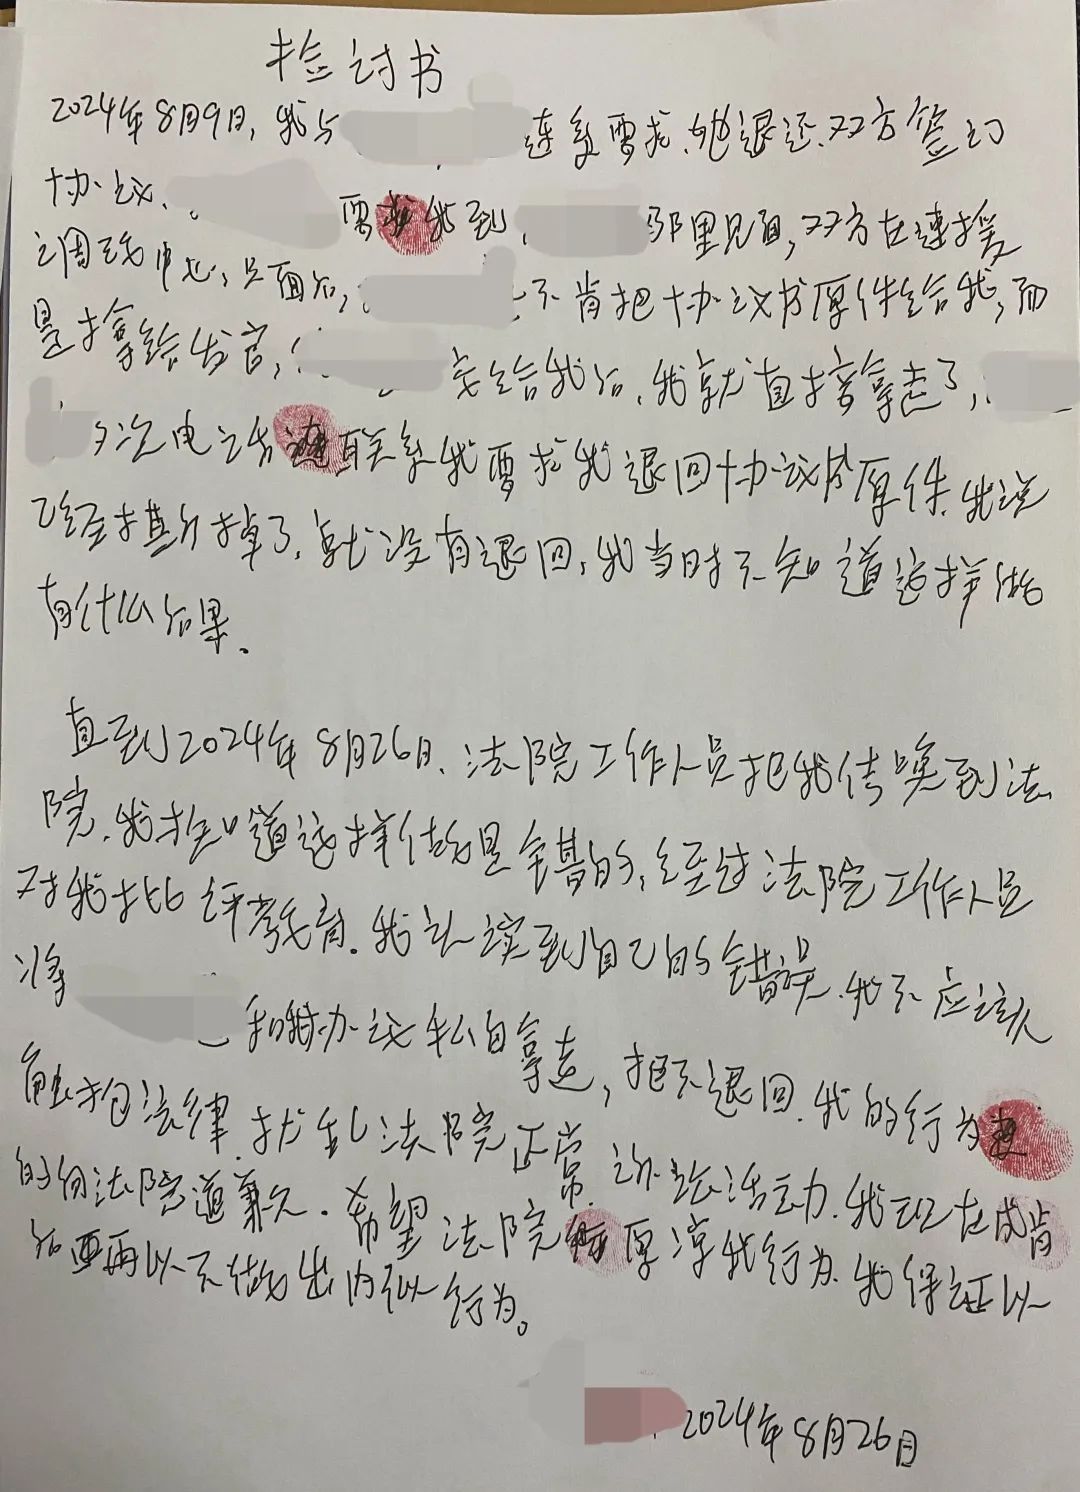 检讨书
2024年8月9日，我与 连系要求，她退还，双方签订
协议、。 要求我到， 那里见面，双方在速援
调 中心，见面后， 不肯把协议书原件给我，而
是拿给法官， 交给我后，我就直接拿走了，
多次电话 联系我要求我退回协议书原件，我说
已经撕掉了，就没有退回，我当时不知道这样做
有什么后果。
直到2024年8月26日，法院工作人员把我传唤到法
院，我才知道这样做是错的，经过法院工作人员
对我批评教育，我认识到自己的错误，我不应该
将 和 协议私自拿走，拒不退回，我的行为
触犯法律，扰乱法院正常诉讼活动，我现在成肯
的向法院道歉，希望法院 原谅我行为，我保证以
后 再以不做出内似行为。
2024年8月26日